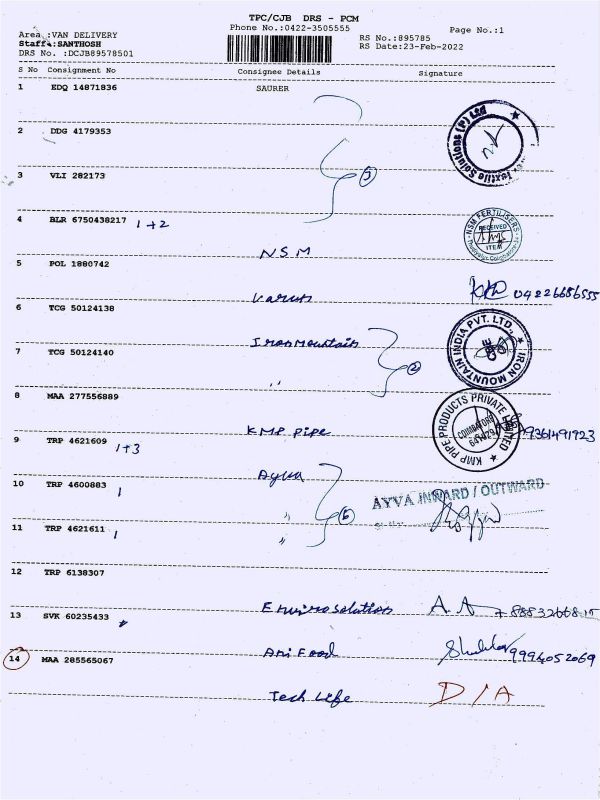 TPC/CJB DRS - PCM
Phone No.:0422-3505555
Page No.:1
Area :VAN DELIVERY
RS No.:895785
Staff :SANTHOSH
RS Date:23-Feb-2022
DRS No. :DCJB89578501
S No Consignment No Consignee Details Signature
1 EDQ 14871836 SAURER
2 DDG 4179353
3 VLI 282173
3
4 BLR 6750438217 1+2
NSM
NSM FERTILISERS RECEIVED ITEM
5 POL 1880742
Varun
04226686555
6 TCG 50124138
Iron Mountain
IRON MOUNTAIN INDIA PVT. LTD.
7 TCG 50124140
2
"
8 MAA 277556889
KMP Pipe
KMP PIPE PRODUCTS PRIVATE LIMITED COIMBATORE
9361491923
9 TRP 4621609 1+3
Ayva
10 TRP 4600883 1
"
AYVA INWARD / OUTWARD
6
11 TRP 4621611 1
"
12 TRP 6138307
Envirosolution
13 SVK 60235433
Ani Food
9994052069
14 MAA 285565067
Tech Life D/A